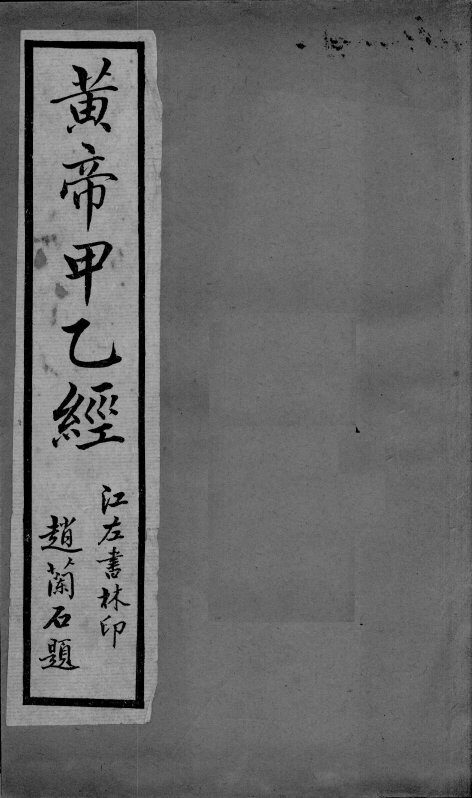 黃帝甲乙經
江左書林印
趙蘭石題